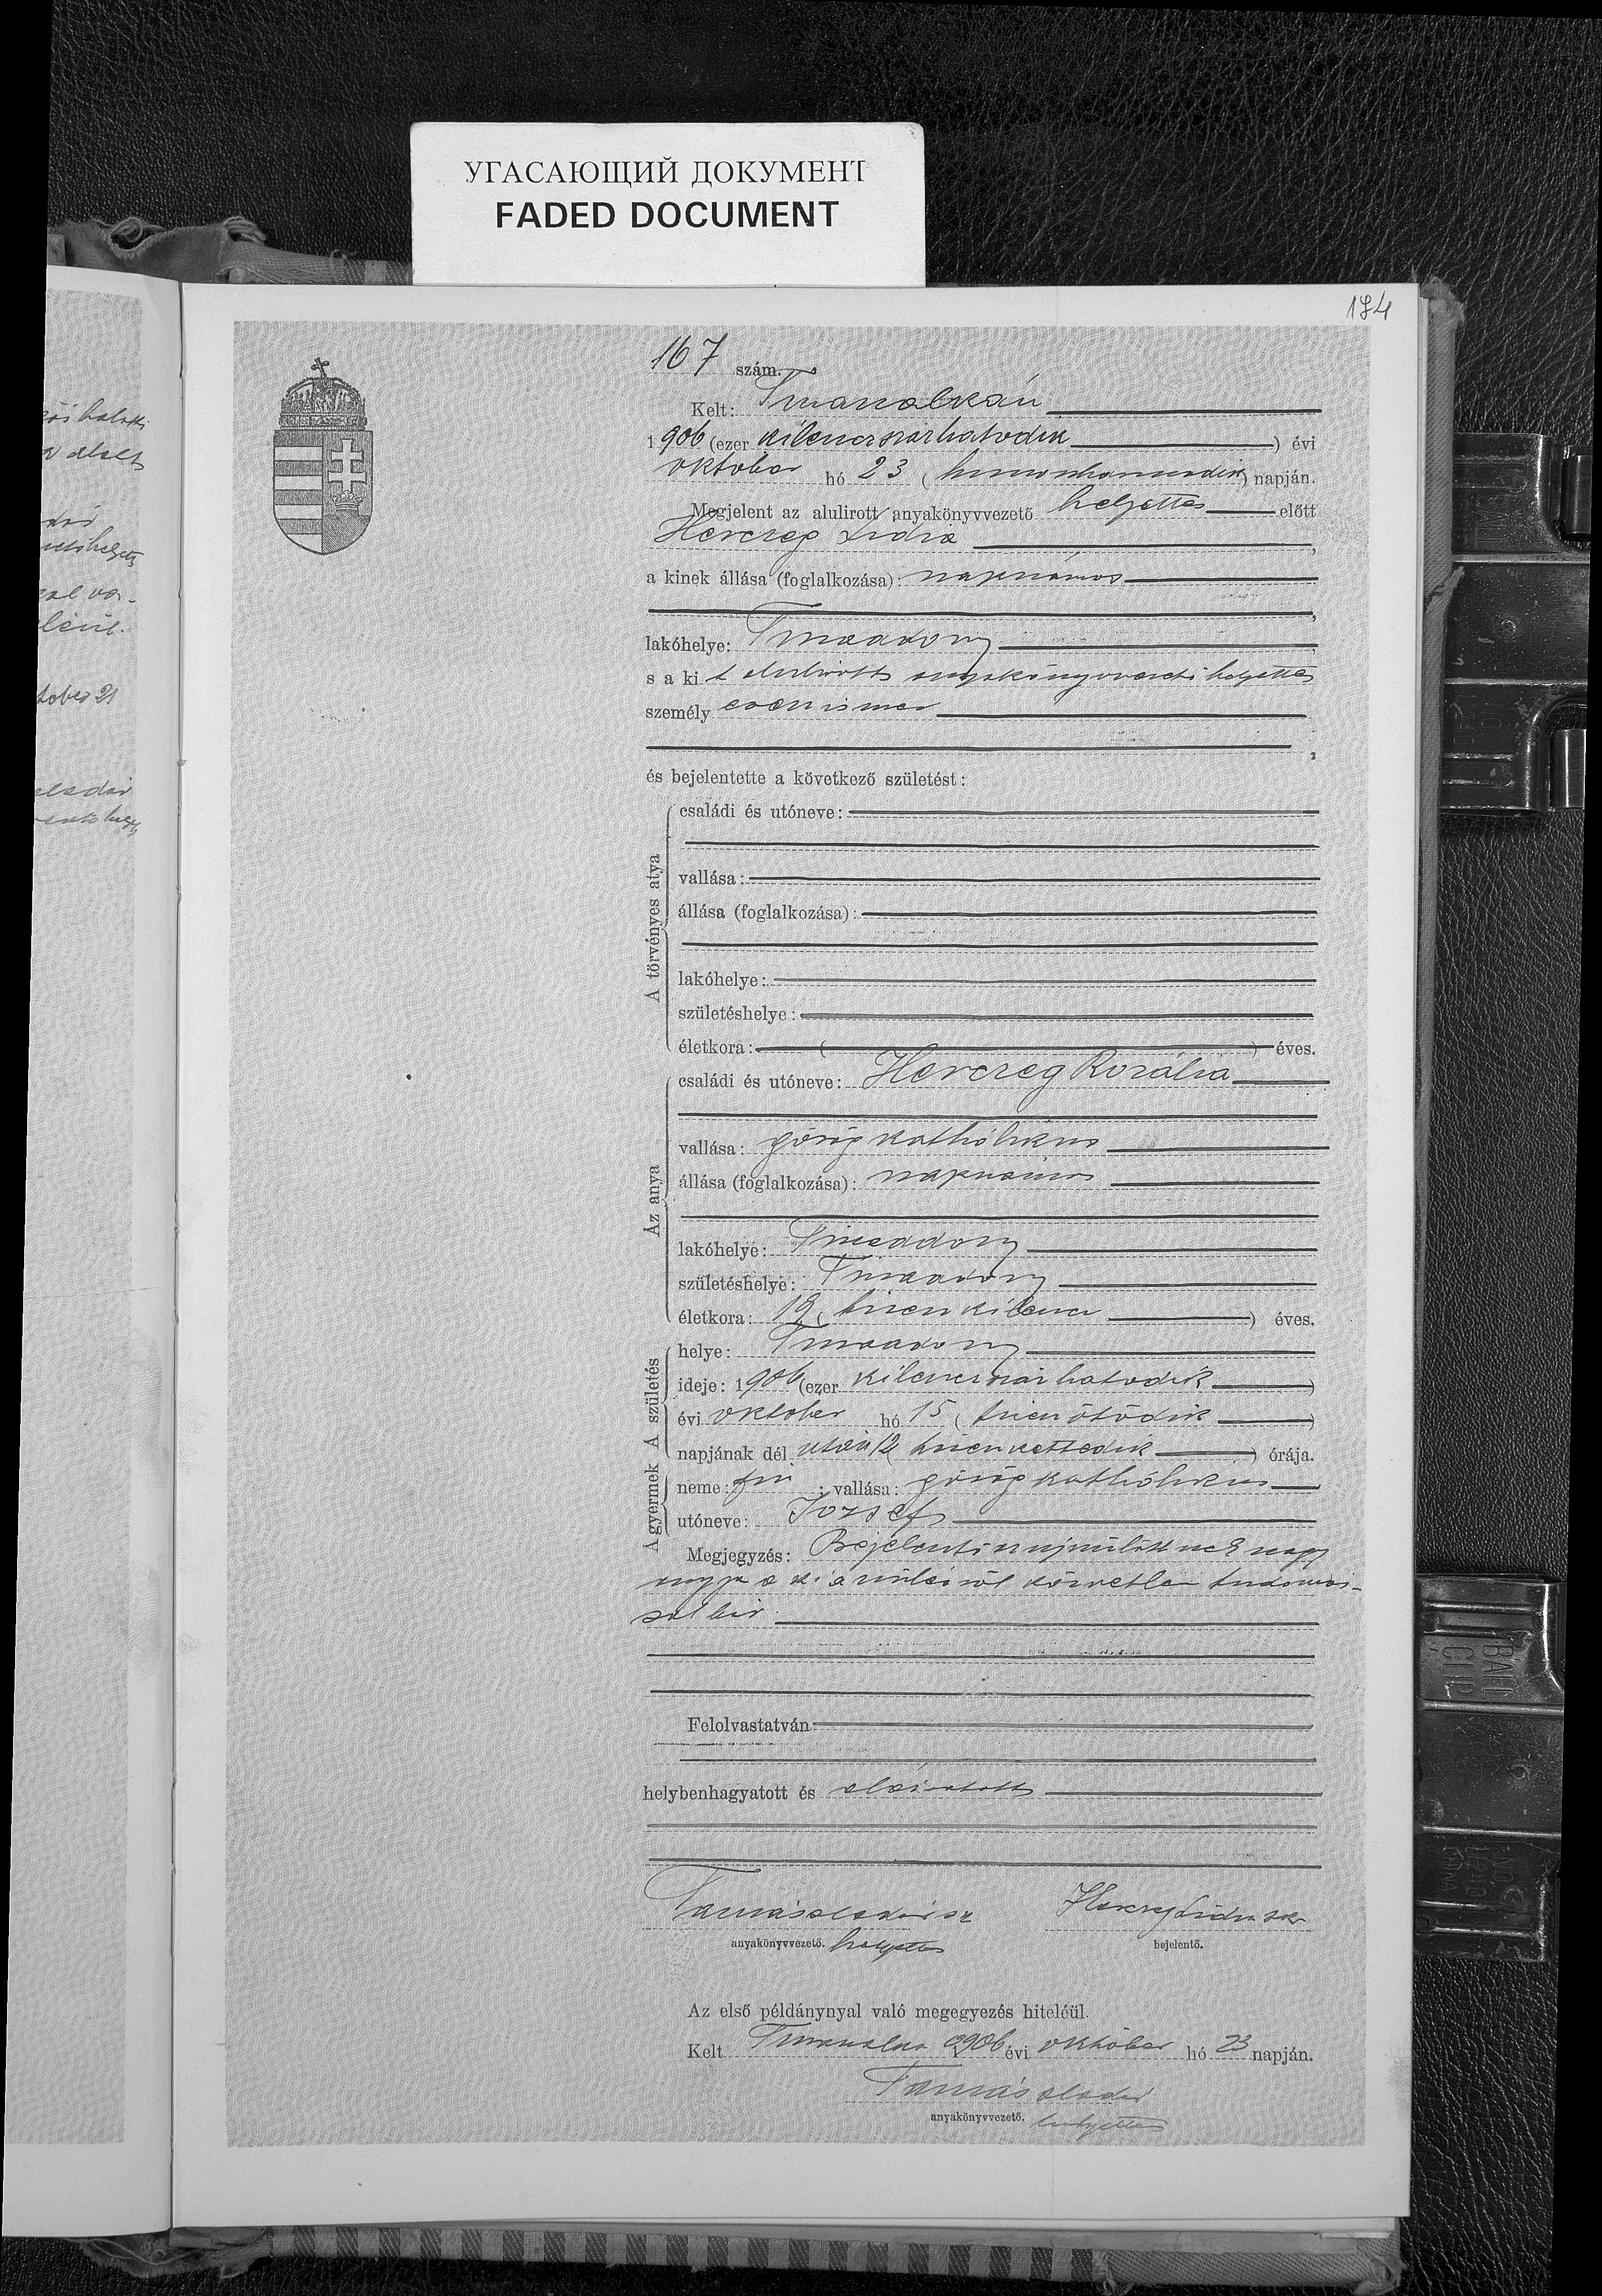 УГАСАЮЩИЙ ДОКУМЕНТ
FADED DOCUMENT
174
167 szám.
Kelt:
1906 (ezer kilencszázhatodik) évi
október hó 23 (huszonharmadik) napján.
Megjelent az alulirott anyakönyvvezető helyettes előtt
Herczeg Lidia,
a kinek állása (foglalkozása): napszámos
,
lakóhelye: Tiszaadony,
s a ki t alulirott anyakönyvvezető helyettes
személy esen ismer
;
és bejelentette a következő születést:
A törvényes atya
családi és utóneve:
vallása:
állása (foglalkozása):
lakóhelye:
születéshelye:
életkora: ( ) éves.
Az anya
családi és utóneve: Herczeg Rozália
vallása: görög katholikus
állása (foglalkozása): napszámos
lakóhelye: Tiszaadony
születéshelye: Tiszaadony
életkora: 19 (tizenkilenc) éves.
A születés
helye: Tiszaadony
ideje: 1906 (ezer kilencszázhatodik)
évi október hó 15 (tizenötödik)
napjának dél után 12 (tizenkettedik) órája.
A gyermek
neme: fiu; vallása: görög katholikus
utóneve: József
Megjegyzés: Bejelentő az ujszülöttnek nagy
anyja a ki a szülésről közvetlen tudomás-
sal bir.
Felolvastatván
helybenhagyatott és aláiratott
Tamás Aladár
anyakönyvvezető. helyettes
Herczeg Lidia
bejelentő.
Az első példánynyal való megegyezés hiteléül.
Kelt 1906 évi október hó 23 napján.
Tamás Aladár
anyakönyvvezető. helyettes